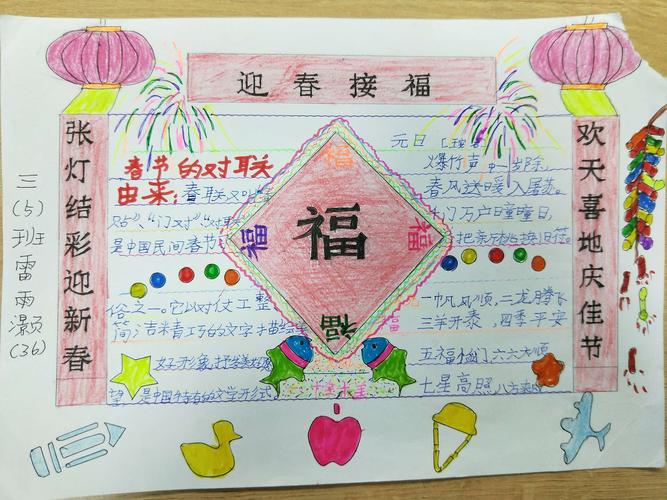 迎春接福
张灯结彩迎新春
欢天喜地庆佳节
三(5)班雷雨灏(36)
春节的对联
由来:春联又叫
"门对""对联
是中国民间春节
俗之一。它以对仗工整
简洁精巧的文字描绘
好形象,抒发美好愿
望,是中国特有的文学形式。
福
福
福
福
福
元日
爆竹声中一岁除,
春风送暖入屠苏。
门万户曈曈日,
把新桃换旧符。
一帆风顺,二龙腾飞
三羊开泰,四季平安
五福临门六六大顺
七星高照八方来财